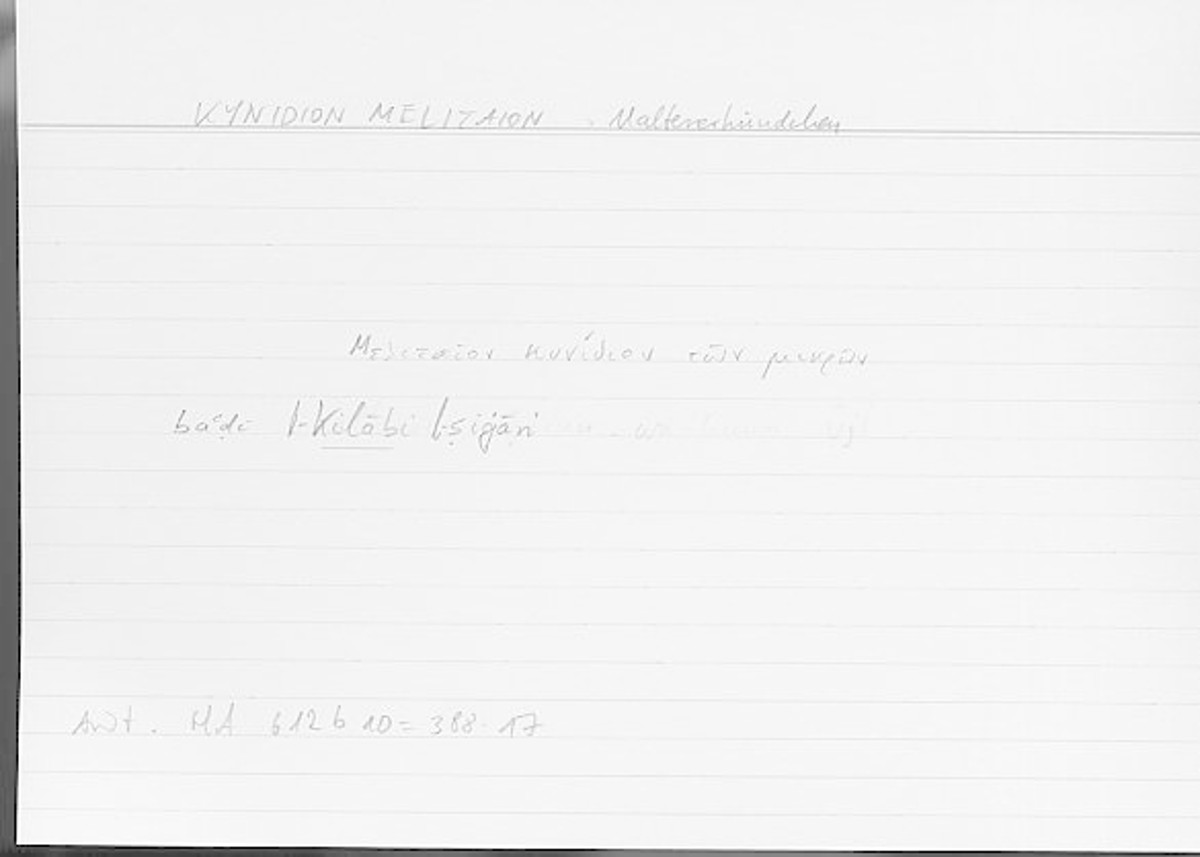 KYNIDION MELITAION . Malteserhündchen
Μελιταῖον κυνίδιον τῶν μικρῶν
baʿḍi l-Kilābi l-ṣiġāri
Arist. HA 612 b 10 = 388. 17